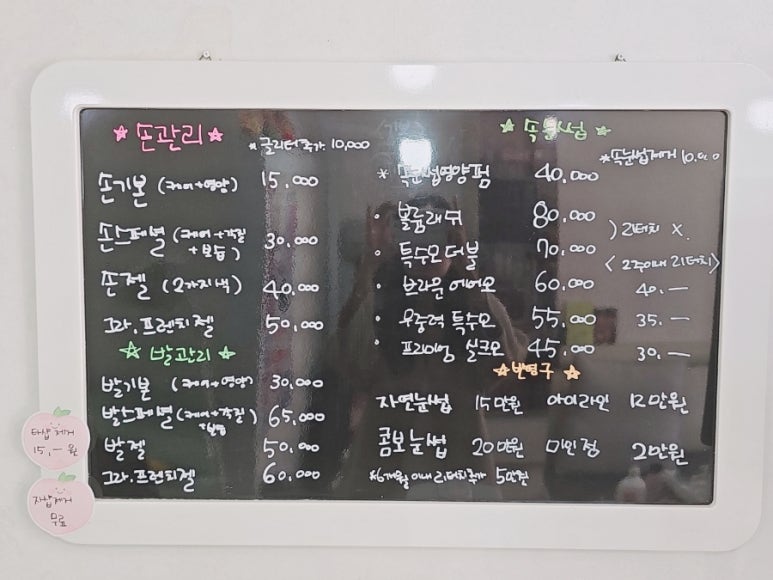 ☆ 손관리 ☆
*글리터추가 10,000
손기본 (케어+영양) 15,000
손스페셜 (케어+각질+보습) 30,000
손젤 (2가지색) 40,000
그라.프렌치젤 50,000
☆ 발관리 ☆
발기본 (케어+영양) 30,000
발스페셜 (케어+각질+보습) 65,000
발젤 50,000
그라.프렌치젤 60,000
☆ 속눈썹 ☆
*속눈썹제거 10,000
* 속눈썹영양펌 40,000
· 볼륨래쉬 80,000
· 특수모더블 70,000
) 리터치 X.
<2주이내 리터치>
· 브라운 에어모 60,000 40.—
· 무중력 특수모 55,000 35.—
· 프리미엄 실크모 45,000 30.—
☆ 반영구 ☆
자연눈썹 15만원 아이라인 12만원
콤보눈썹 20만원 미인점 2만원
*6개월이내 리터치추가 5만원
타샵제거
15.—원
자샵제거
무료